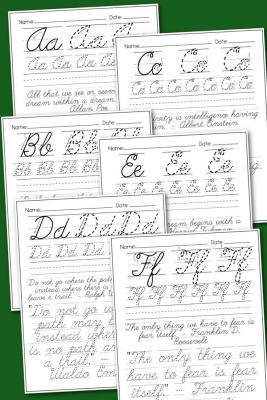 Name: Date:
Aa Aa A
Aa Aa Aa Aa Aa
All that we see or seem
dream within a dream
Allan Poe
Name: Date:
Cc Cc Cc
Cc Cc Cc Cc Cc Cc Cc
is intelligence having
Albert Einstein
Name: Date:
Bb Bb
Bb Bb Bb Bb
Name: Date:
Ee Ee Ee
Ee Ee Ee Ee Ee Ee Ee
begins with a
Name: Date:
Dd Dd Dd
Dd Dd Dd Dd
Do not go where the path
instead where there is
leave a trail." Ralph
"Do not go
path may
instead where
is no path an
a trail." -
Waldo Em
Name: Date:
Ff Ff Ff
Ff Ff Ff Ff Ff Ff
"The only thing we have to fear is
fear itself." - Franklin D.
Roosevelt
"The only thing we
have to fear is fear
itself." -